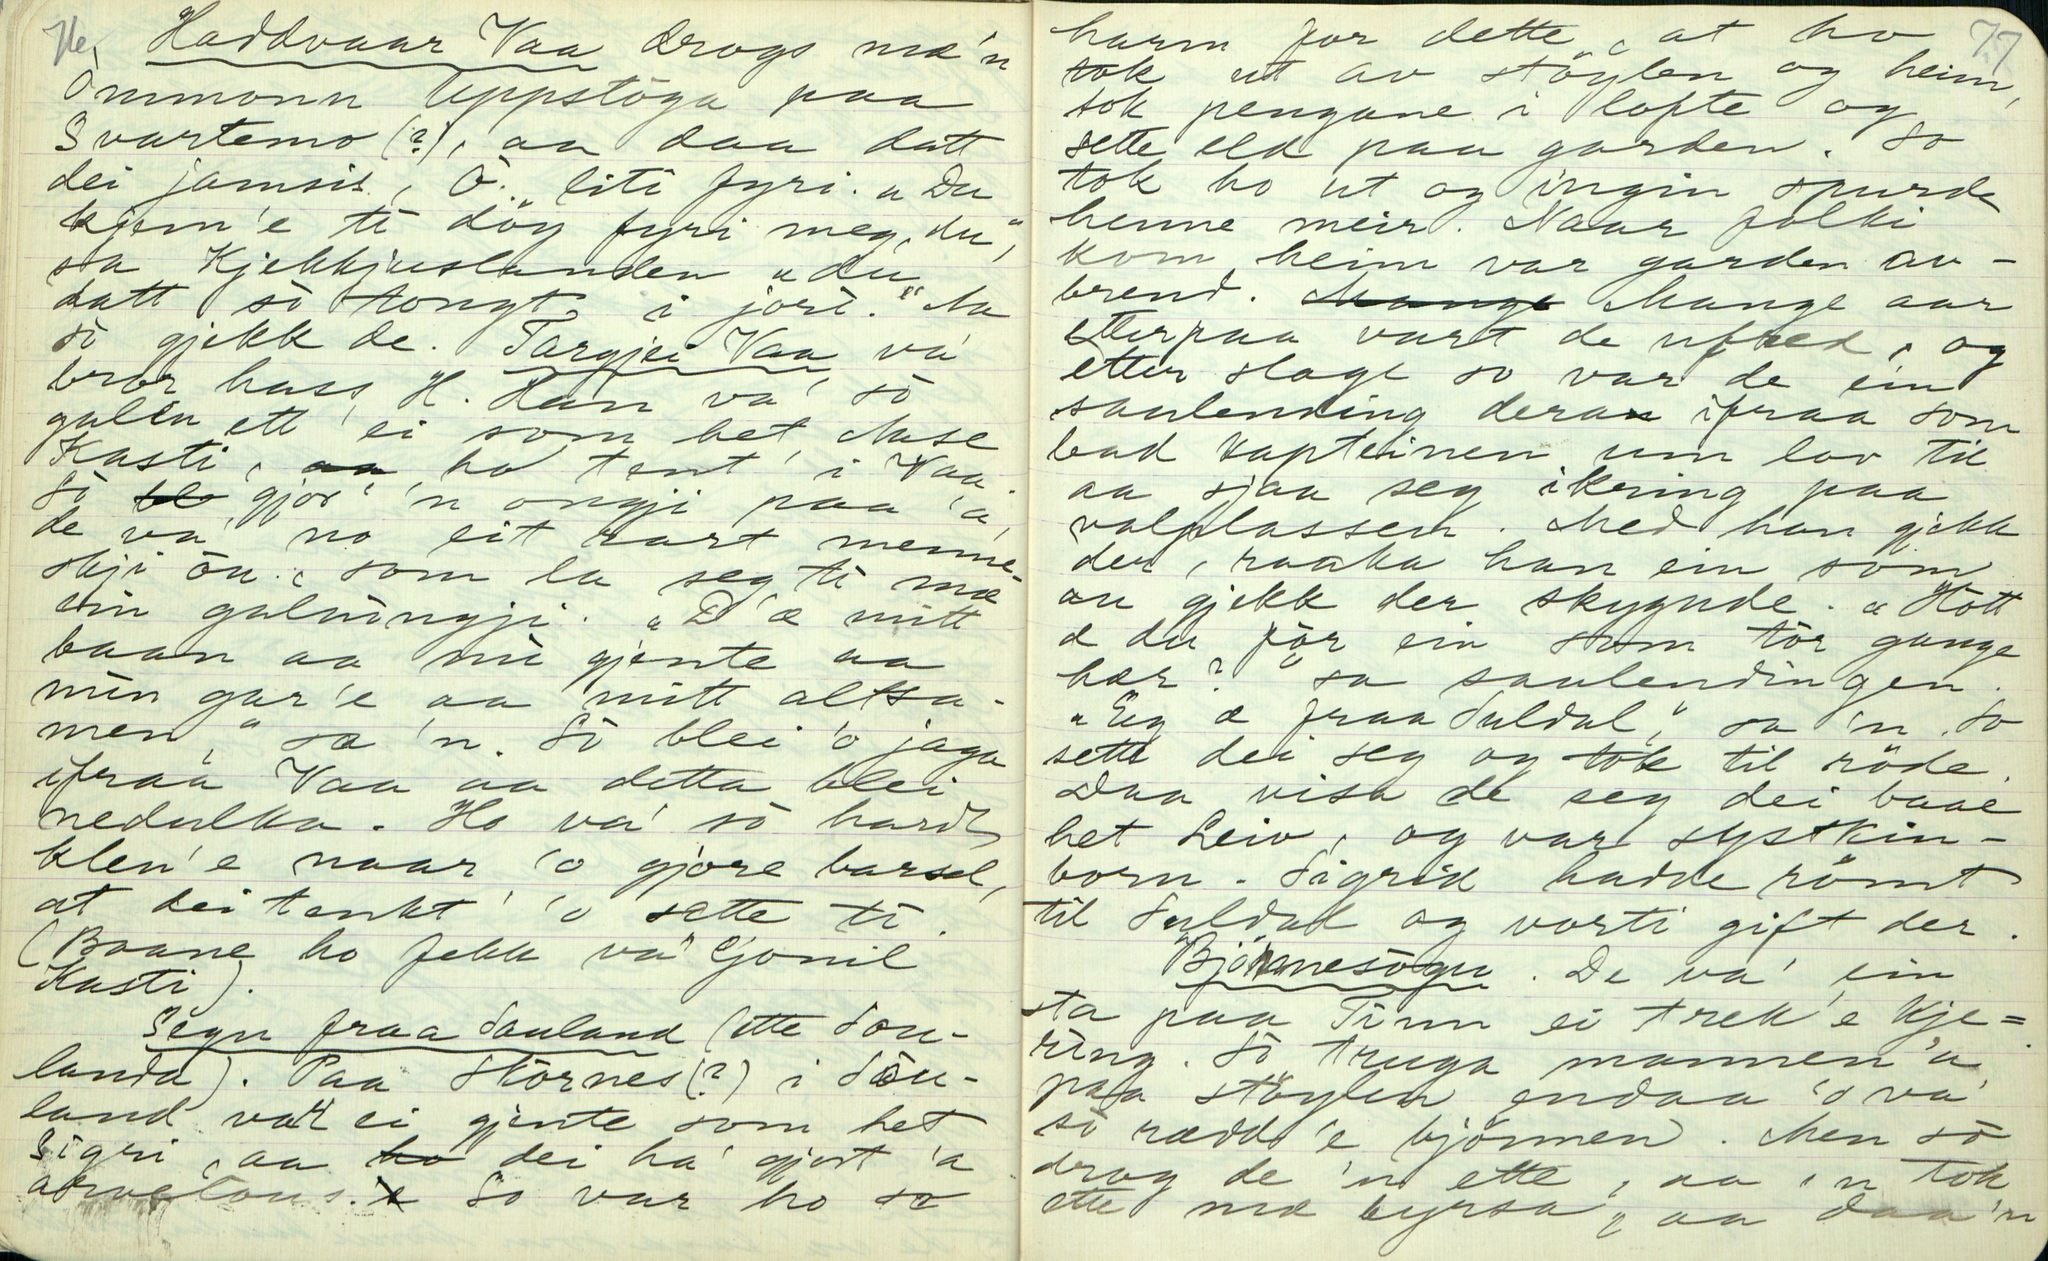 76
Haddvaar Vaa drogs mæ'n
Ommonn Uppstöga paa
Svartemo (?), aa daa datt
dei jamsis, Ò. liti fyri. "Du
kjem'e ti döy fyri meg, du",
sa Kjekkjuslanden "du
datt sò tongt i jori." Aa
sò gjekk de. Targjei Vaa va'
bror hass H. Han va' sò
galen ett' ei som het Aase
Kasti, aa ho tent' i Vaa.
Sò gjor' 'n ongji paa 'a,
de va' no eit rart menne-
skji òu, som la seg ti mæ
ein galningji. "D'æ mitt
baan aa mi gjente aa
min gar'e aa mitt altsa-
men," sa 'n. Sò blei 'o jaga
ifraa Vaa aa detta blei
nedulka. Ho va' sò hardt
klen'e naar 'o gjore barsel,
at dei tenkt' 'o sette ti.
(Baane ho fekk va' Gonil
Kasti).
Segn fraa Sauland (ette Sou-
landa). Paa Störnes (?) i Sòu-
land var ei gjente som het
Sigri, aa ho dei ha' gjort 'a
arvelous. So var ho so
77
harm for dette, at ho
tok ut av stöylen og heim,
tok pengane i lofte og
sette eld paa garden. So
tok ho ut og ingin spurde
henne meir. Naar folki
kom heim var garden av-
brend. Mange Mange aar
etterpaa vart de ufred, og
etter slage so var de ein
saulending dera ifraa som
bad kapteinen um lov til
aa sjaa seg ikring paa
valplassen. Med han gjekk
der, raaka han ein som
au gjekk der skygnde. "Hott
æ du for ein som tòr gange
her?" sa saulendingen.
"Eg æ fraa Suldal", sa 'n. So
sette dei seg og tok til röde.
Daa visa de seg dei baae
het Leiv, og var systkin-
born. Sigrid hadde römt
til Suldal og vorti gift der.
Björnnesògu. De va' ein
sta paa Tinn ei trek'e kje=
ring. Sò truga mannen 'a
paa stöylen endaa 'o va'
sò rædd'e björnen. Men sò
drog de 'n ette, aa 'n tok
ette mæ byrsa, aa daa 'n